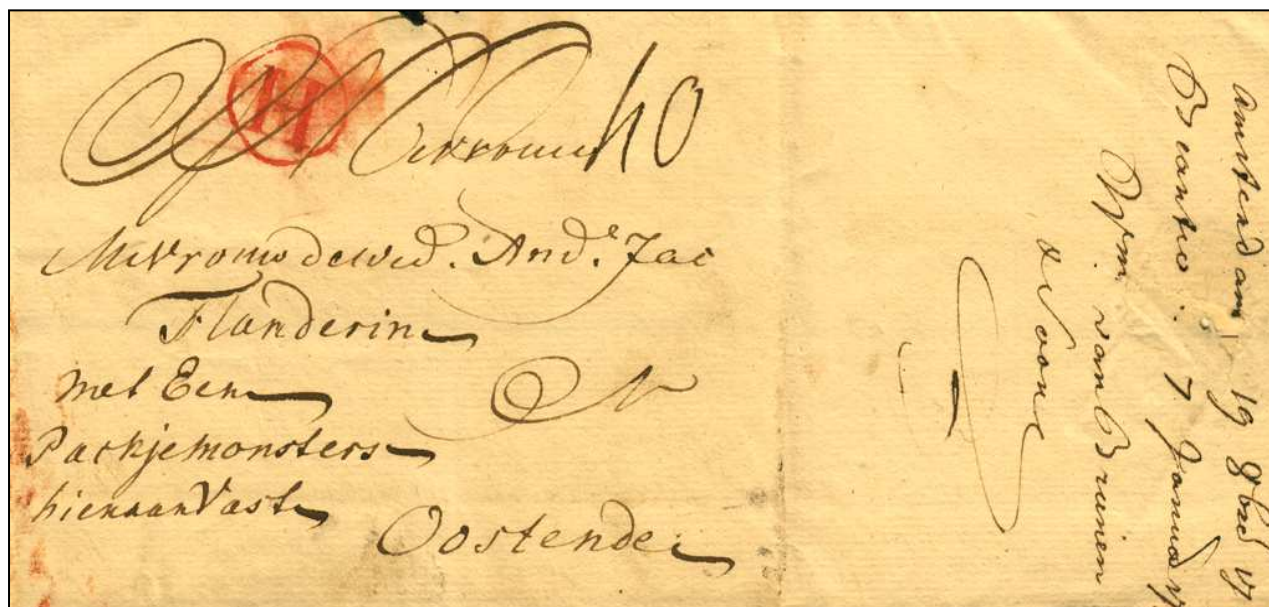 H
Mevrouw 40
Mevrouw de wed. And.e Jac
Flanderin
met Een
Packje monsters
hieraan Vast
Oostende
Amsterdam 19 8bre
Beantw: 7 January
Wm van Brienen
& Zoone